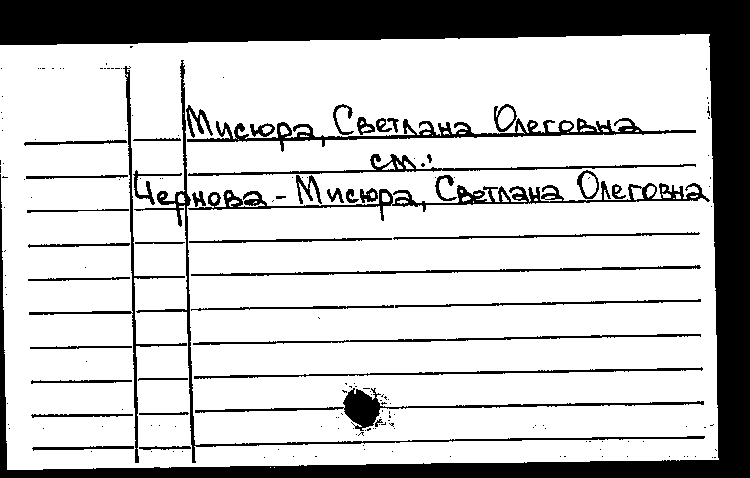 Мисюра, Светлана Олеговна
см.:
Чернова - Мисюра, Светлана Олеговна